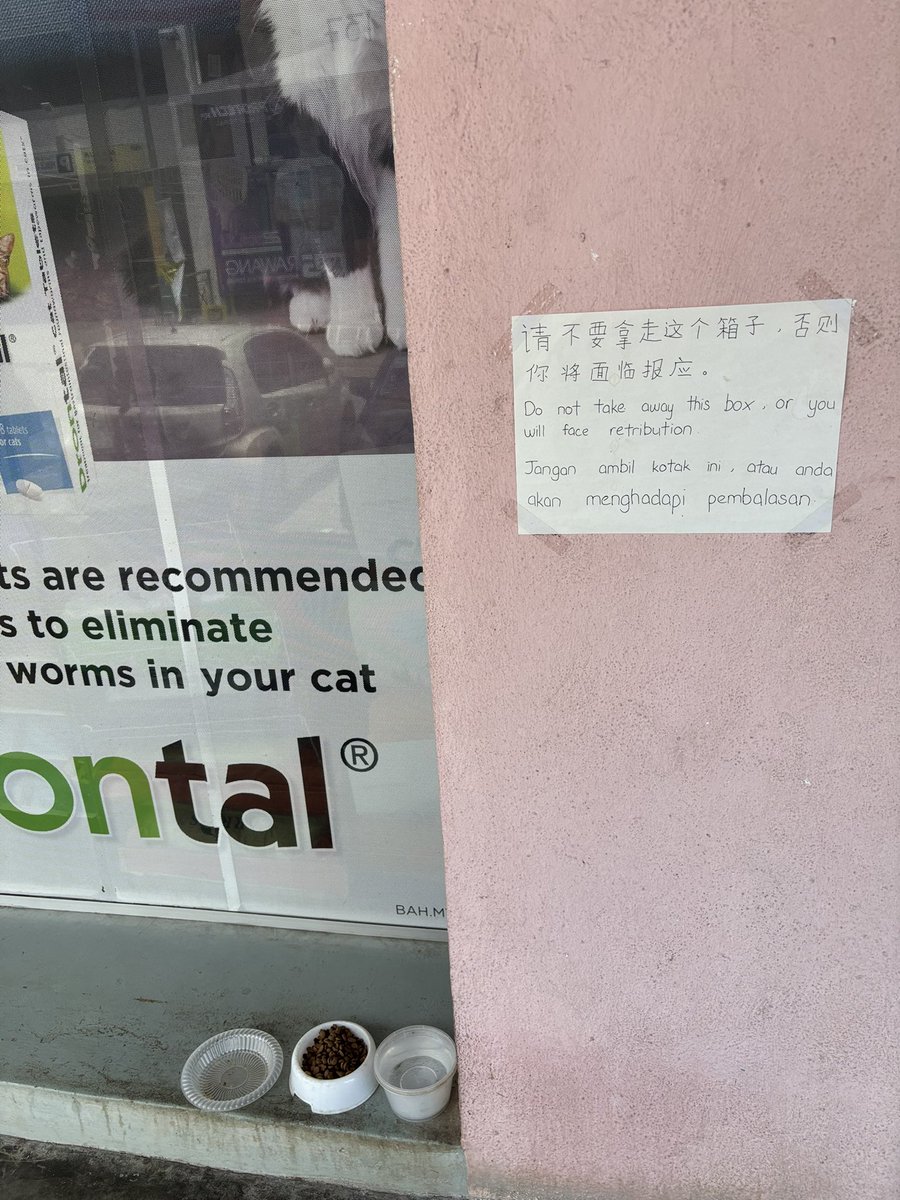 8 tablets
or cats
prontal cat Tablets
ts are recommended
s to eliminate
worms in your cat
ontal®
BAH.M
RAWANG
请不要拿走这个箱子，否则
你将面临报应。
Do not take away this box, or you
will face retribution.
Jangan ambil kotak ini, atau anda
akan menghadapi pembalasan.